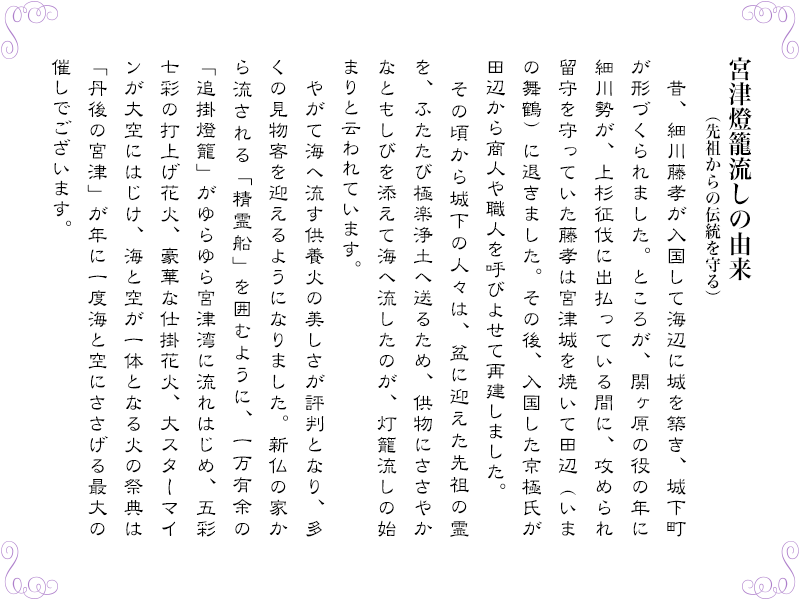 宮津燈籠流しの由来
（先祖からの伝統を守る）
昔、細川藤孝が入国して海辺に城を築き、城下町
が形づくられました。ところが、関ヶ原の役の年に
細川勢が、上杉征伐に出払っている間に、攻められ
留守を守っていた藤孝は宮津城を焼いて田辺（いま
の舞鶴）に退きました。その後、入国した京極氏が
田辺から商人や職人を呼びよせて再建しました。
その頃から城下の人々は、盆に迎えた先祖の霊
を、ふたたび極楽浄土へ送るため、供物にささやか
なともしびを添えて海へ流したのが、灯籠流しの始
まりと云われています。
やがて海へ流す供養火の美しさが評判となり、多
くの見物客を迎えるようになりました。新仏の家か
ら流される「精霊船」を囲むように、一万有余の
「追掛燈籠」がゆらゆら宮津湾に流れはじめ、五彩
士彩の打上げ花火、豪華な仕掛花火、大スターマイ
ンが大空にはじけ、海と空が一体となる火の祭典は
「丹後の宮津」が年に一度海と空にささげる最大の
催しでございます。